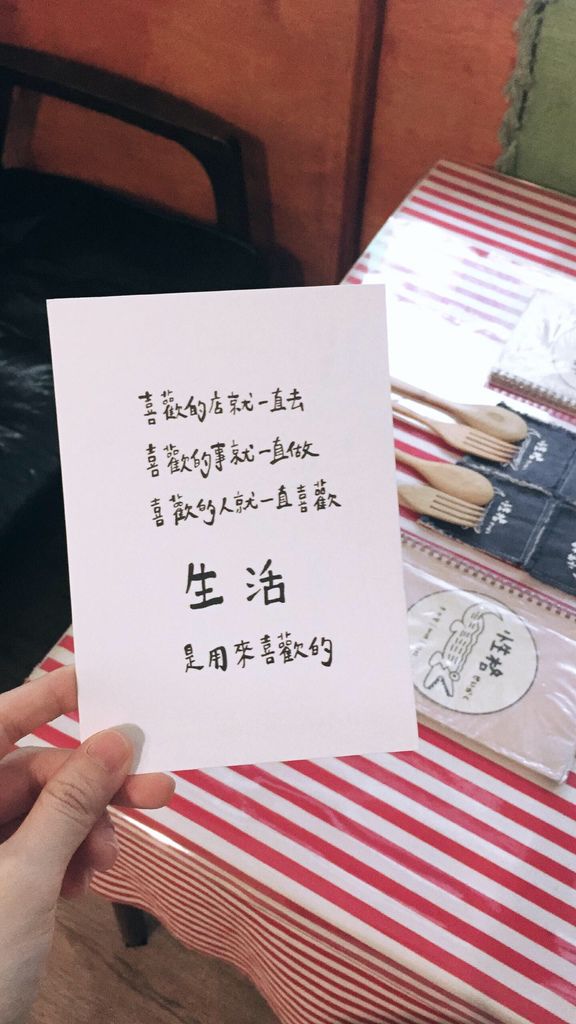 喜歡的店就一直去
喜歡的事就一直做
喜歡的人就一直喜歡
生活
是用來喜歡的